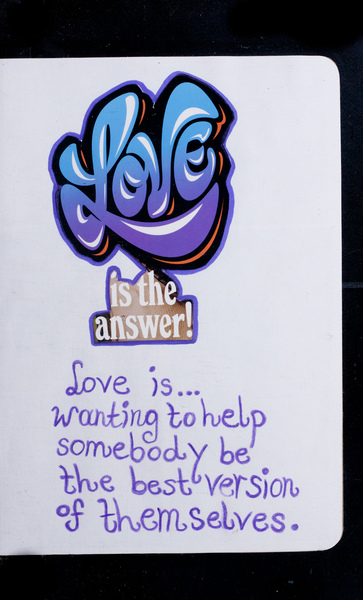 Love
is the
answer!
Love is...
wanting to help
somebody be
the best version
of themselves.